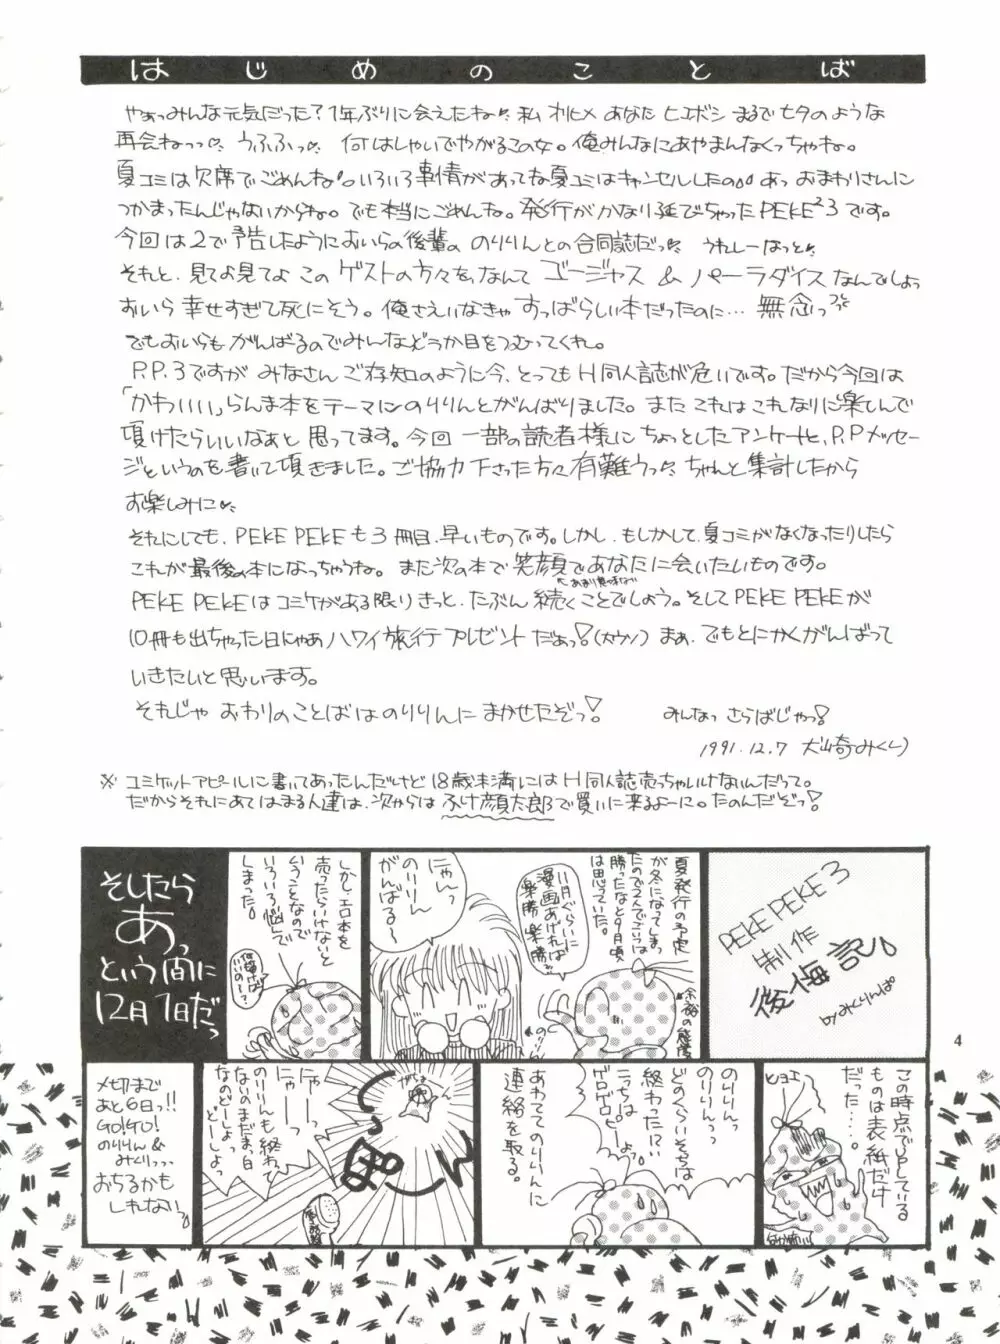 はじめのことば
やあっみんな元気だった？1年ぶりに会えたね♡ 私 オリヒメ あなた ヒコボシ まるで七夕のような
再会ねっっ♡ うふふっ♡ 何はしゃいでやがるこの女。俺みんなにあやまんなくっちゃね。
夏コミは欠席でごめんね。いろいろ事情があってな夏コミはキャンセルしたの。あっ おまわりさんに
つかまったんじゃないからね。でも本当にごめんね。発行がかなり延びちゃったPEKE²3です。
今回は2で予告したようにおいらの後輩の のりりんとの合同誌だっ♡ うれしーはっと♡
それと、見てよ見てよ このゲストの方々を、なんて ゴージャス & パーラダイス なんでしょっ
おいら 幸せすぎて死にそう。俺さえいなきゃ すっばらしい本だったのに… 無念っ
でもおいらも がんばるのでみんなどうか目をつむってくれ。
P.P.3ですが みなさん ご存知のように今、とってもH同人誌が危いです。だから今回は
「かわいい」らんま本をテーマにのりりんとがんばりました。また これは これなりに楽しんで
頂けたらいいなぁと 思ってます。今回 一部の読者様に ちょっとしたアンケートと、P.Pメッセー
ジというのを 書いて頂きました。ご協力下さった方々有難うっ♡ ちゃんと集計したから
お楽しみに♡
それにしても、PEKE PEKEも3冊目、早いものです。しかし、もしかして、夏コミがなくなったりしたら
これが最後の本になっちゃうね。また次の本で笑顔であなたに会いたいものです。
あまり意味ない
PEKE PEKEはコミケがある限りきっと、たぶん 続くことでしょう。そしてPEKE PEKEが
10冊も出ちゃった日にゃあ ハワイ旅行プレゼント だぁっ!(大ウソ) まぁ、でもとにかくがんばって
いきたいと思います。
それじゃ おわりのことばはのりりんに まかせたぞっ! みんなっ さらばじゃっ!
1991.12.7 犬崎みくり
※ コミケットアピールに書いてあったんだけど 18歳未満には H同人誌売っちゃいけないんだって。
だからそれにあてはまる人達は、次からは ふけ顔太郎で買いに来るよーに。たのんだぞっ!
PEKE PEKE 3
制作
後悔記。
by みくりんぱ
夏発行の予定
が冬になってしまっ
勝ったなと9月頃
は思っていた。
11月ぐらいに
漫画あげれば
楽勝 楽勝
余裕の態度
にゃんっ
のりりん
がんばる〜
しかし、エロ本を
売ったらいけないと
いうことなので
いろいろ悩んで
しまった。
何描けば
いいのー!
そしたら
あっ
という間に
12月1日だっ
4
この時点でUPしている
ものは表紙だけ
だった……。
のりりんっ
のりりんっ
どのくらいそちらは
終わったにい
こっちは
ゲロゲロピーよっ
あわててのりりんに
連絡を取る。
にゃーっ
にゃーっ
のりりんも終わって
ないのまだまっ白
なのどーしよっ
どーしよっ
メ切まで
あと6日っ!!
GO!GO!
のりりん &
みくりっっっ
おちるかも
しれない。